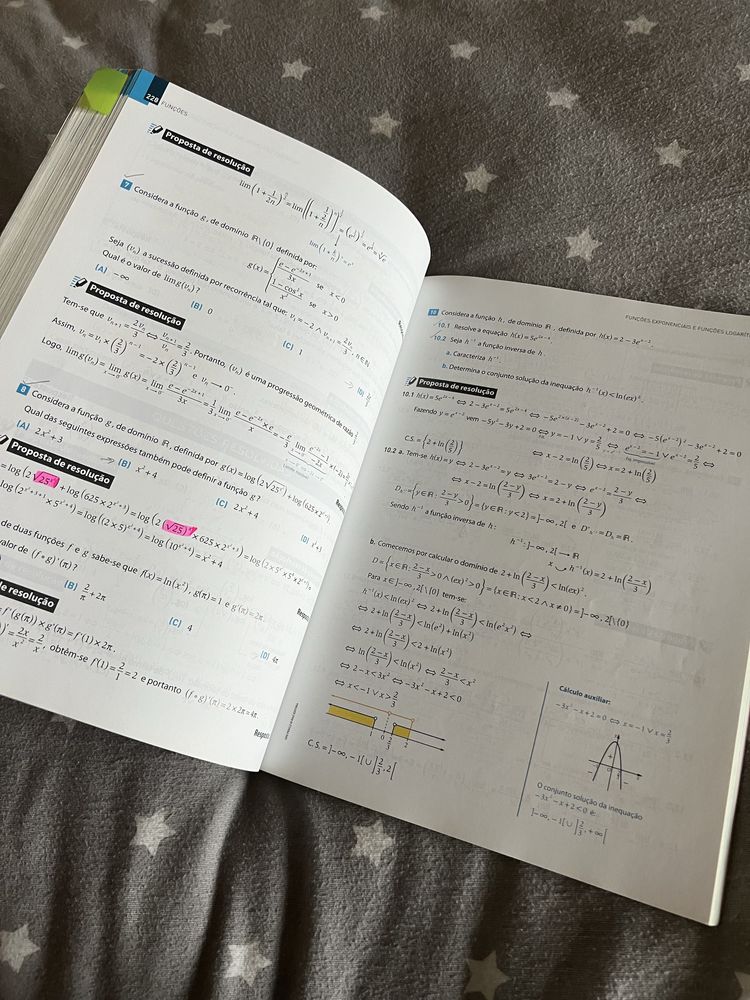 228 FUNÇÕES
Proposta de resolução
lim(1 + 1/(2n))
7 Considera a função g, de domínio ℝ\{0} definida por:
g(x) = { (e − e^(−2x+1))/(3x) se x < 0
(1 − cos²x)/x² se x > 0
Seja (vₙ) a sucessão definida por recorrência tal que: v₁ = −2 ∧ vₙ₊₁ = 2vₙ/3, n ∈ ℕ
Qual é o valor de lim g(vₙ)?
(A) −∞
(B) 0
(C) 1
(D)
Proposta de resolução
Tem-se que vₙ₊₁ = 2vₙ/3 ⇔ vₙ₊₁/vₙ = 2/3. Portanto, (vₙ) é uma progressão geométrica de razão 2/3.
Assim, vₙ = v₁ × (2/3)ⁿ⁻¹ = −2 × (2/3)ⁿ⁻¹ e vₙ → 0⁻.
Logo, lim g(vₙ) = lim g(x) = lim (e − e^(−2x+1))/(3x) = 1/3 lim
8 Considera a função g, de domínio ℝ, definida por g(x) = log(2√25^x²) + log(625 × 2^(x²+3))
Qual das seguintes expressões também pode definir a função g?
(A) 2x² + 3
(B) x² + 4
(C) 2x² + 4
(D) x² + 3
Proposta de resolução
= log(2√25^x²) + log(625 × 2^(x²+3)) = log(2(√25)^x² × 625 × 2^(x²+3)) = log(2 × 5^x² × 5⁴ × 2^(x²+3))
log(2^(x²+3+1) × 5^(x²+4)) = log((2 × 5)^(x²+4)) = log(10^(x²+4)) = x² + 4
de duas funções f e g sabe-se que f(x) = ln(x²), g(π) = 1 e g'(π) = 2π.
valor de (f∘g)'(π)?
(B) 2/π + 2π
(C) 4
(D) 4π
de resolução
= f'(g(π)) × g'(π) = f'(1) × 2π.
= 2x/x² = 2/x, obtém-se f'(1) = 2/1 = 2 e portanto (f∘g)'(π) = 2 × 2π = 4π.
FUNÇÕES EXPONENCIAIS E FUNÇÕES
10 Considera a função h, de domínio ℝ, definida por h(x) = 2 − 3e^(x−2).
10.1 Resolve a equação h(x) = 5e^(2x−4).
10.2 Seja h⁻¹ a função inversa de h.
a. Caracteriza h⁻¹.
b. Determina o conjunto solução da inequação h⁻¹(x) < ln(ex)².
Proposta de resolução
10.1 h(x) = 5e^(2x−4) ⇔ 2 − 3e^(x−2) = 5e^(2x−4) ⇔ −5e^(2×(x−2)) − 3e^(x−2) + 2 = 0 ⇔ −5(e^(x−2))² − 3e^(x−2) + 2 = 0
Fazendo y = e^(x−2) vem −5y² − 3y + 2 = 0 ⇔ y = −1 ∨ y = 2/5 ⇔ e^(x−2) = −1 ∨ e^(x−2) = 2/5 ⇔
⇔ x − 2 = ln(2/5) ⇔ x = 2 + ln(2/5)
C.S. = {2 + ln(2/5)}
10.2 a. Tem-se h(x) = y ⇔ 2 − 3e^(x−2) = y ⇔ 3e^(x−2) = 2 − y ⇔ e^(x−2) = (2 − y)/3 ⇔
⇔ x − 2 = ln((2 − y)/3) ⇔ x = 2 + ln((2 − y)/3)
= {y ∈ ℝ : (2 − y)/3 > 0} = {y ∈ ℝ : y < 2} = ]−∞, 2[ e = Dₕ = ℝ.
Sendo h⁻¹ a função inversa de h:
h⁻¹: ]−∞, 2[ → ℝ
x ↷ h⁻¹(x) = 2 + ln((2 − x)/3)
b. Comecemos por calcular o domínio de 2 + ln((2 − x)/3) < ln(ex)².
D = {x ∈ ℝ : (2 − x)/3 > 0 ∧ (ex)² > 0} = {x ∈ ℝ : x < 2 ∧ x ≠ 0} = ]−∞, 2[\{0}
Para x ∈ ]−∞, 2[\{0} tem-se:
h⁻¹(x) < ln(ex)² ⇔ 2 + ln((2 − x)/3) < ln(e²x²) ⇔
⇔ 2 + ln((2 − x)/3) < ln(e²) + ln(x²) ⇔
⇔ 2 + ln((2 − x)/3) < 2 + ln(x²) ⇔
⇔ ln((2 − x)/3) < ln(x²) ⇔ (2 − x)/3 < x²
⇔ 2 − x < 3x² ⇔ −3x² − x + 2 < 0
⇔ x < −1 ∨ x > 2/3
C.S. = ]−∞, −1[ ∪ ]2/3, 2[
Cálculo auxiliar:
−3x² − x + 2 = 0 ⇔ x = −1 ∨ x = 2/3
O conjunto solução da inequação
−3x² − x + 2 < 0 é:
]−∞, −1[ ∪ ]2/3, +∞[